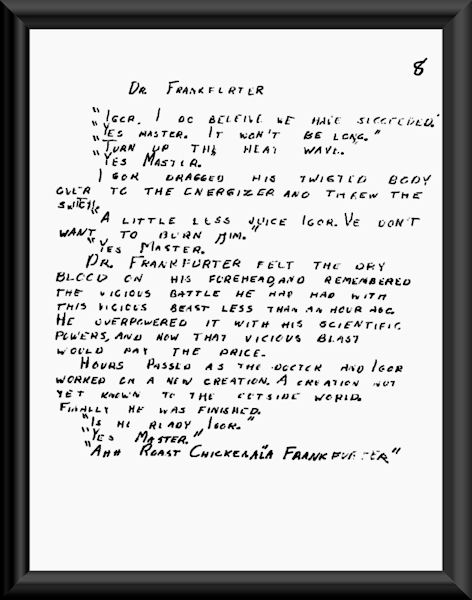 8
DR. FRANKFURTER
"IGOR, I DO BELEIVE WE HAVE SUCCEEDED."
"YES MASTER. IT WON'T BE LONG."
"TURN UP THE HEAT WAVE.
"YES MASTER.
IGOR DRAGGED HIS TWISTED BODY
OVER TO THE ENERGIZER AND THREW THE
SWITCH.
"A LITTLE LESS JUICE IGOR. VE DON'T
WANT TO BURN HIM."
"YES MASTER.
DR. FRANKFURTER FELT THE DRY
BLOOD ON HIS FOREHEAD, AND REMEMBERED
THE VICIOUS BATTLE HE HAD HAD WITH
THIS VICIOUS BEAST LESS THAN AN HOUR AGO.
HE OVERPOWERED IT WITH HIS SCIENTIFIC
POWERS, AND NOW THAT VICIOUS BEAST
WOULD PAY THE PRICE.
HOURS PASSED AS THE DOCTOR AND IGOR
WORKED ON A NEW CREATION. A CREATION NOT
YET KNOWN TO THE OUTSIDE WORLD.
FINALLY HE WAS FINISHED.
"IS HE READY IGOR."
"YES MASTER."
"AHH ROAST CHICKEN A'LA FRANKFURTER"